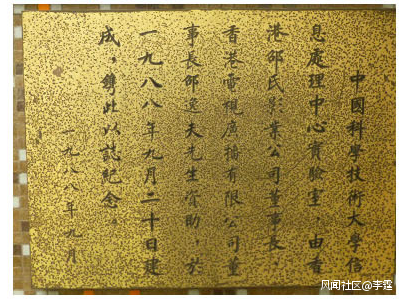 中國科學技術大學信
息處理中心實驗室，由香
港邵氏影業公司董事長、
香港電視廣播有限公司董
事長邵逸夫先生資助，於
一九八八年九月二十日建
成，鐫此以誌紀念。
一九八八年九月
风闻社区@李霆